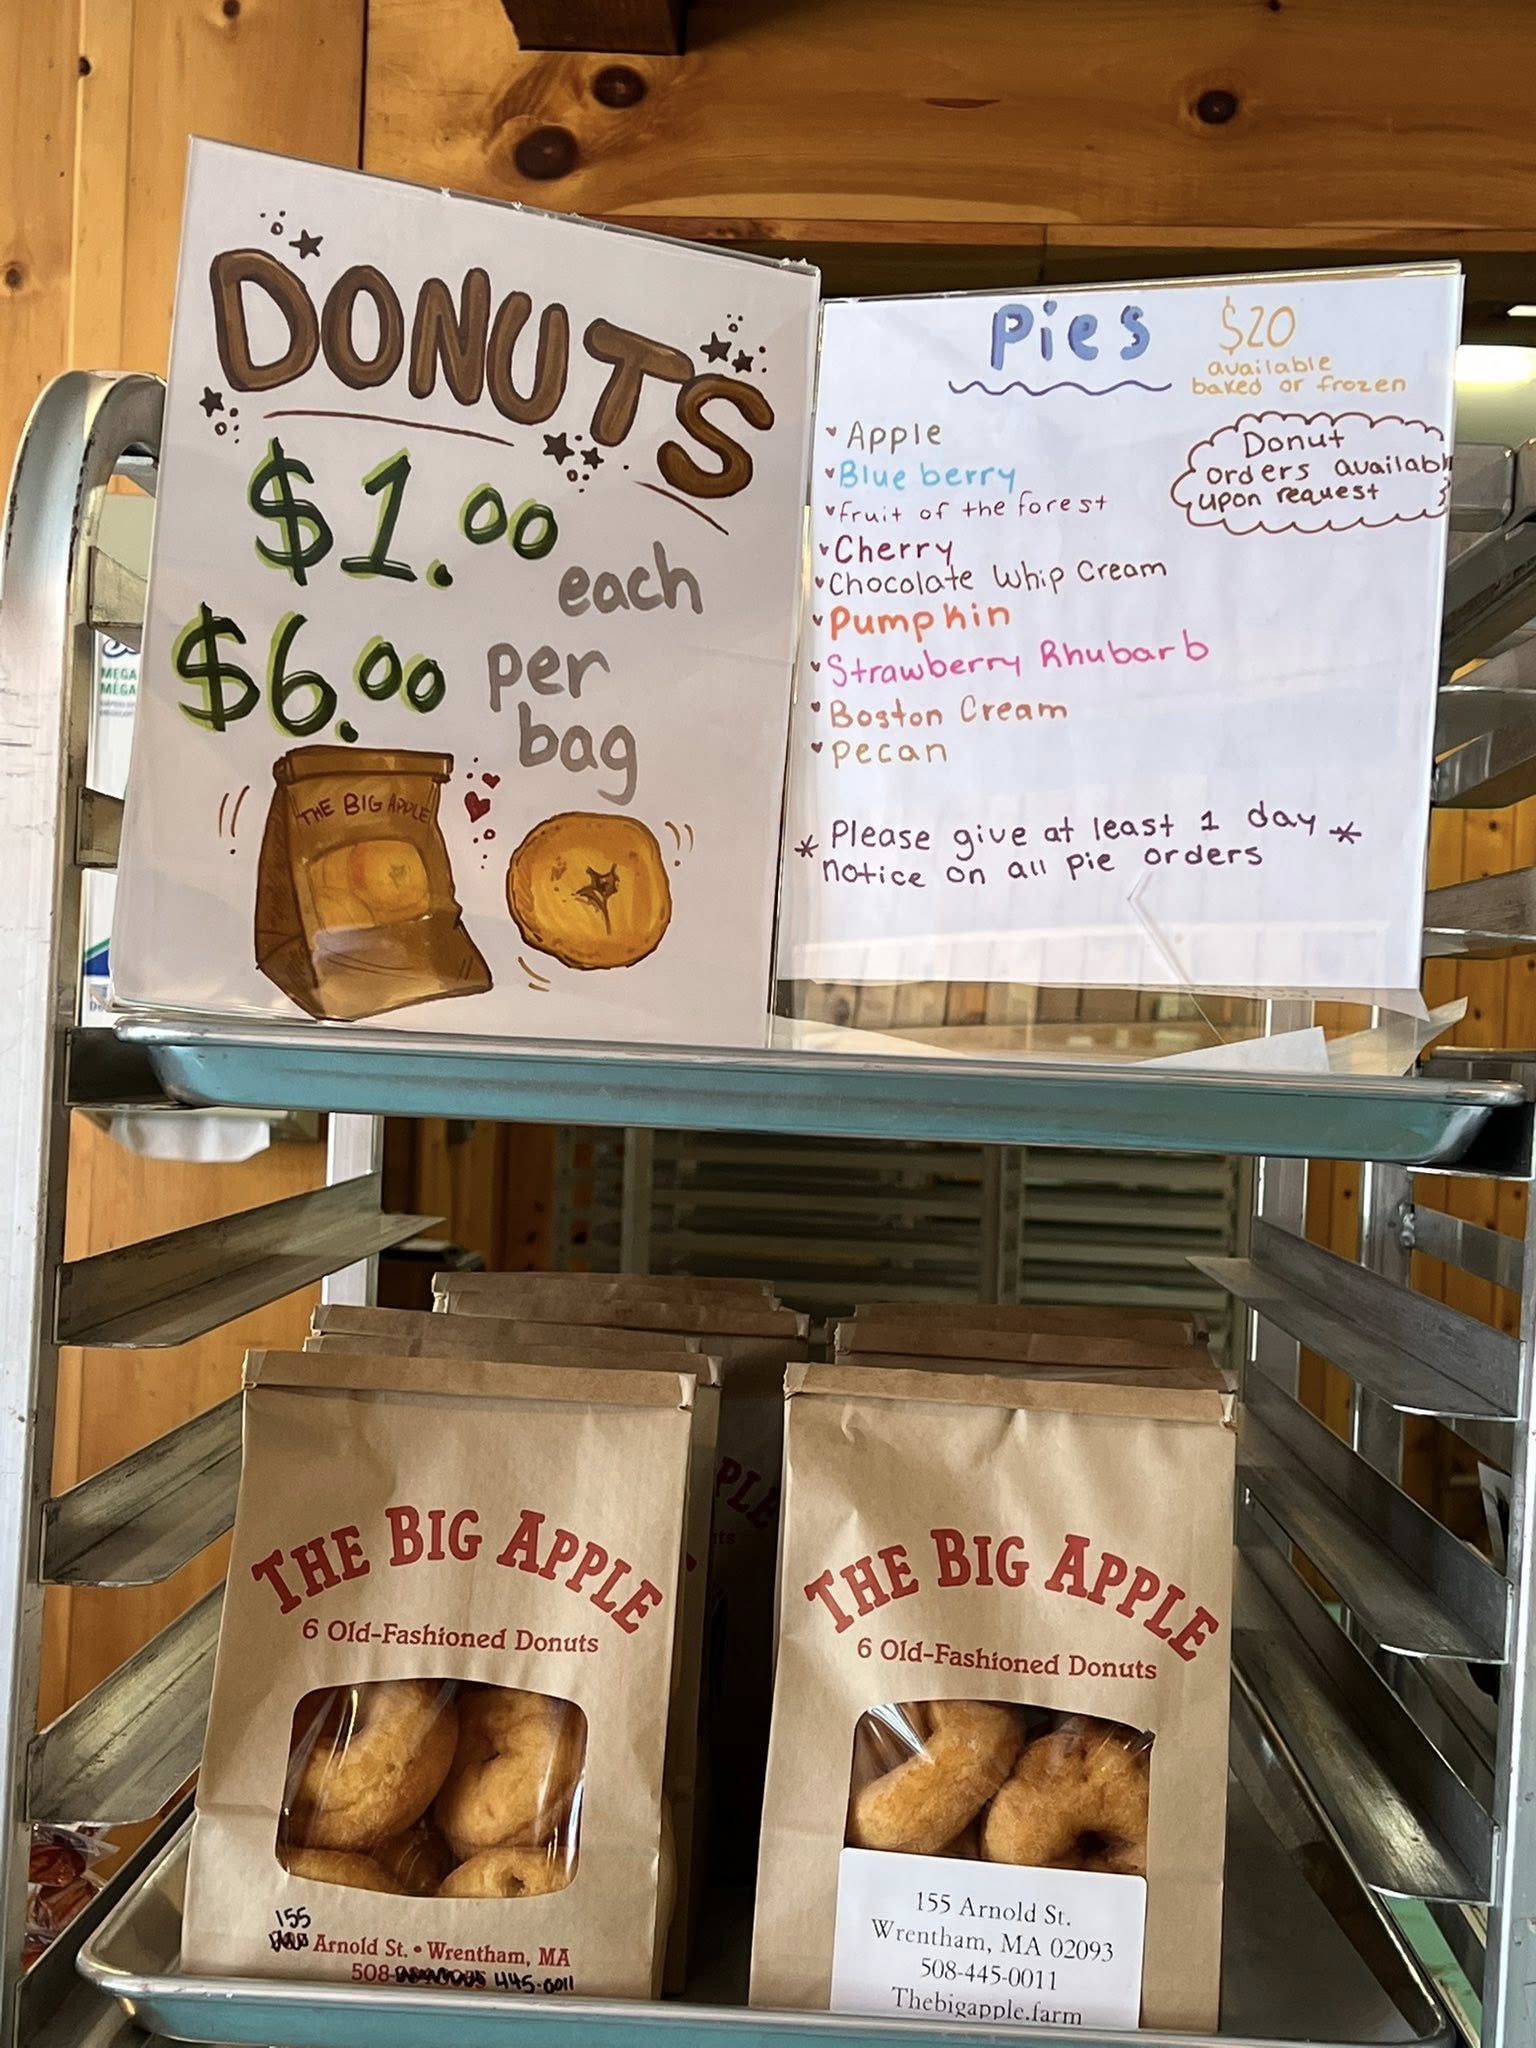 DONUTS
$1.00 each
$6.00 per
bag
THE BIG APPLE
Pies
$20
available
baked or frozen
Apple
Blueberry
fruit of the forest
Cherry
Chocolate Whip Cream
Pumpkin
Strawberry Rhubarb
Boston Cream
pecan
Donut
orders availabl
upon request
* Please give at least 1 day *
notice on all pie orders
MEGA
MEGA
THE BIG APPLE
6 Old-Fashioned Donuts
155
Arnold St. • Wrentham, MA
508- 445-0011
PLE
ts
THE BIG APPLE
6 Old-Fashioned Donuts
155 Arnold St.
Wrentham, MA 02093
508-445-0011
Thebigapple.farm